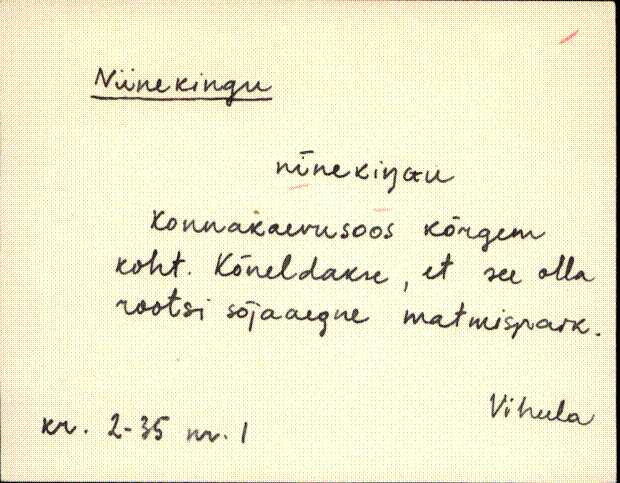 Niinekingu
nīnekiŋɢu
Konnakaevusoos kõrgem
koht. Kõneldakse, et see olla
rootsi sõjaaegne matmispaik.
Vihula
kr. 2-35 nr. 1